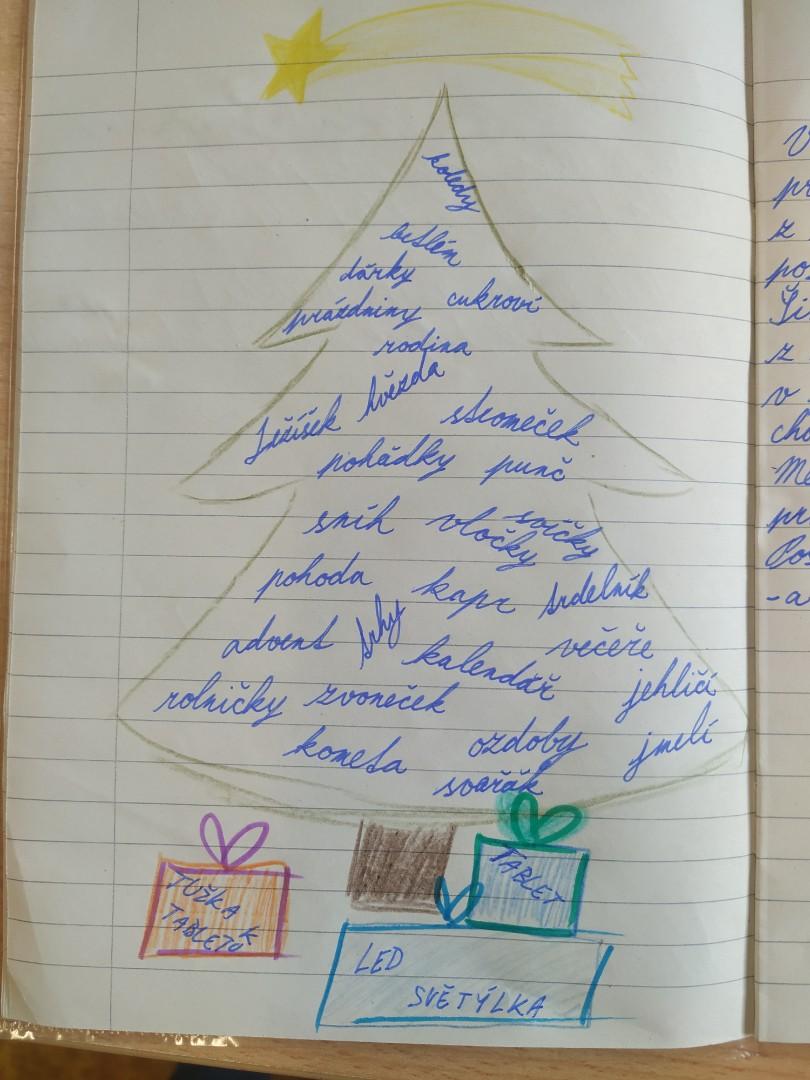 koledy
betlém
dárky
prázdniny cukroví
rodina
hvězda
Ježíšek stromeček
pohádky punč
sníh vločky svíčky
pohoda kapr
advent trhy kalendář večeře
rolničky zvoneček jehličí
kometa ozdoby jmelí
svařák
TUŽKA K
TABLETU
TABLET
LED
SVĚTÝLKA
V
z
z
v